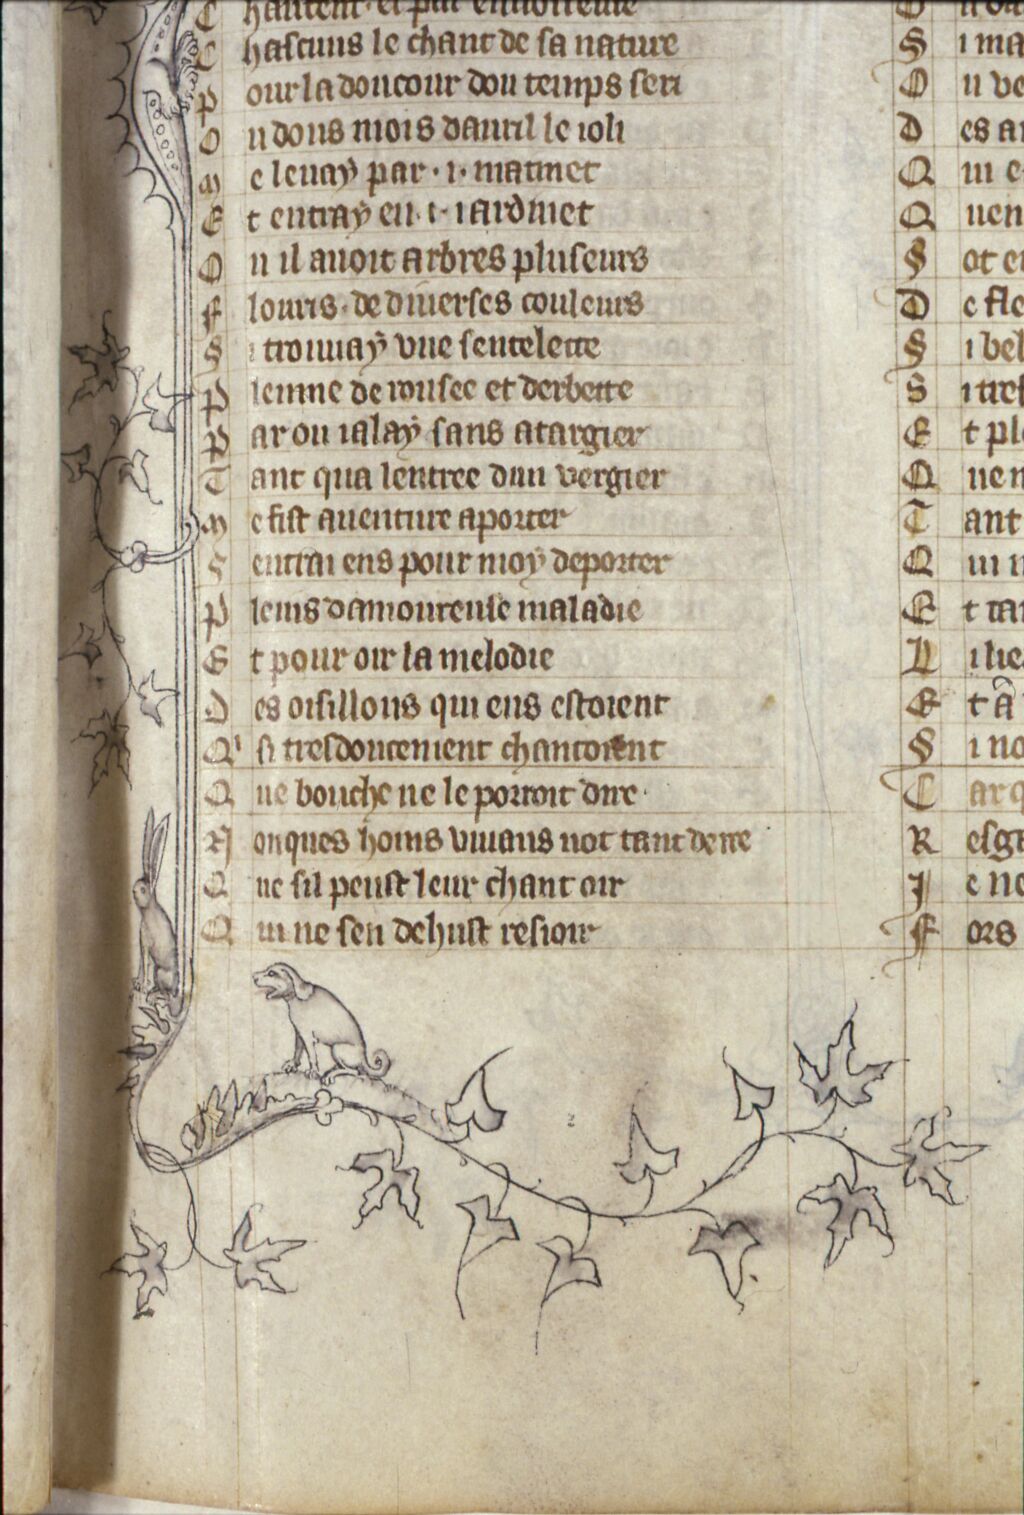 C hascuns le chant de sa nature
P our la doucour dou temps seri
O u douls mois dauril le ioli
M e leuay par · i · matinet
E t entray en · i · iardinet
O u il auoit arbres pluseurs
F louris · de diuerses couleurs
S i trouuay vne sentelette
P leinne de rousee et derbette
P ar ou ialay sans atargier
T ant qua lentree dun vergier
M e fist auenture aporter
S entrai ens pour moy deporter
P leins damoureuse maladie
E t pour oir la melodie
D es oisillons qui ens estoient
Q' si tresdoucement chantoient
Q ue bouche ne le porroit dire ·
N onques homs viuans not tant de ire
Q ue sil peust leur chant oir
Q ui ne sen dehust resioir
S i ma
O u ve
D es a
Q ui e
Q uen
S ot e
D e fle
S i bel
S i tres
E t pl
Q ue n
T ant
Q ui n
E t tan
L i lie
E t a
S i no
C ar q
R esg
I e ne
F ors